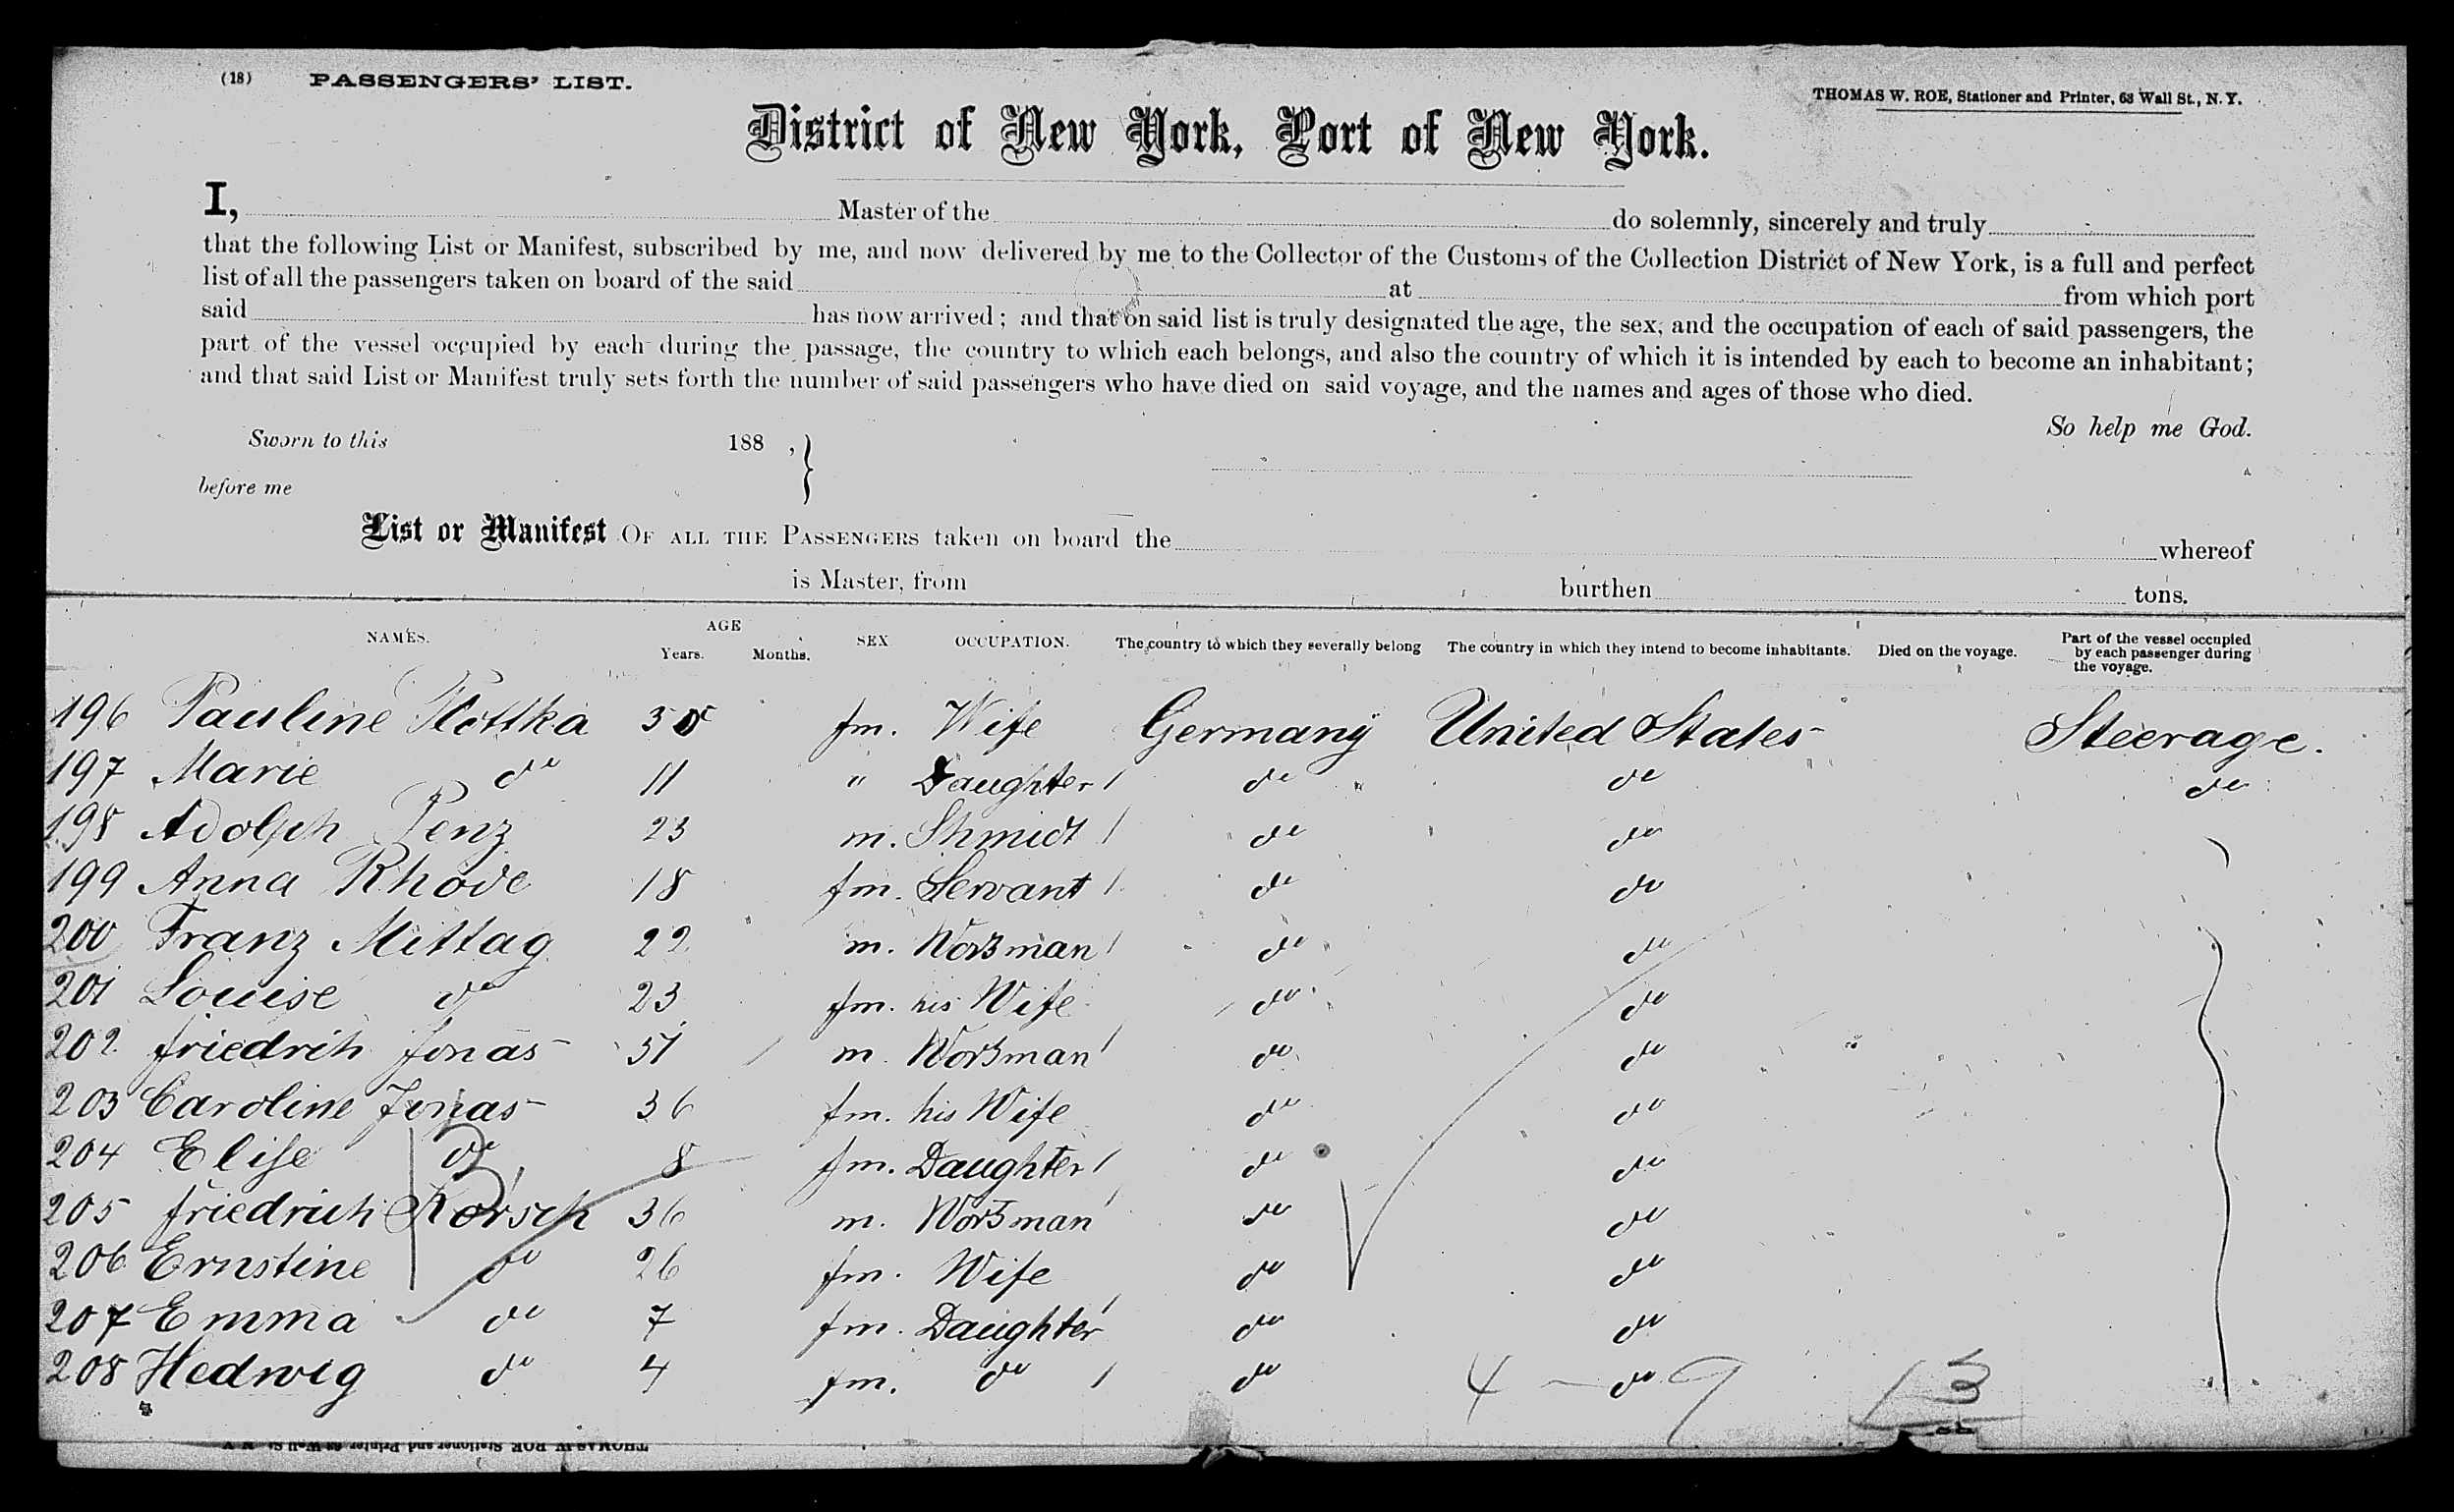 (18) PASSENGERS' LIST.
THOMAS W. ROE, Stationer and Printer, 63 Wall St., N. Y.
District of New York, Port of New York.
I, Master of the do solemnly, sincerely and truly
that the following List or Manifest, subscribed by me, and now delivered by me to the Collector of the Customs of the Collection District of New York, is a full and perfect
list of all the passengers taken on board of the said at from which port
said has now arrived; and that on said list is truly designated the age, the sex, and the occupation of each of said passengers, the
part of the vessel occupied by each during the passage, the country to which each belongs, and also the country of which it is intended by each to become an inhabitant;
and that said List or Manifest truly sets forth the number of said passengers who have died on said voyage, and the names and ages of those who died.
So help me God.
Sworn to this 188 ,
before me
List or Manifest OF ALL THE PASSENGERS taken on board the whereof
is Master, from burthen tons.
NAMES. AGE Years. Months. SEX OCCUPATION. The country to which they severally belong The country in which they intend to become inhabitants. Died on the voyage. Part of the vessel occupied by each passenger during the voyage.
196 Pauline fm. Wife Germany United States Steerage.
197 Marie do 11 " Daughter do do do
198 Adolph Penz 23 m. Shmidt do do
199 Anna Rhode 18 fm. Servant do do
200 Franz Mittag 22 m. Workman do do
201 Louise do 23 fm. his Wife do do
202 friedrih Jonas 51 m Workman do do
203 Caroline Jonas 36 fm. his Wife do do
204 Elise do 8 fm. Daughter do do
205 friedrich Korsch 36 m. Workman do do
206 Ernstine do 26 fm. Wife do do
207 Emma do 7 fm. Daughter do do
208 Hedwig do 4 fm. do do do
4 - 9 13
THOMAS W. ROE Stationer and Printer 63 Wall St. N. Y.